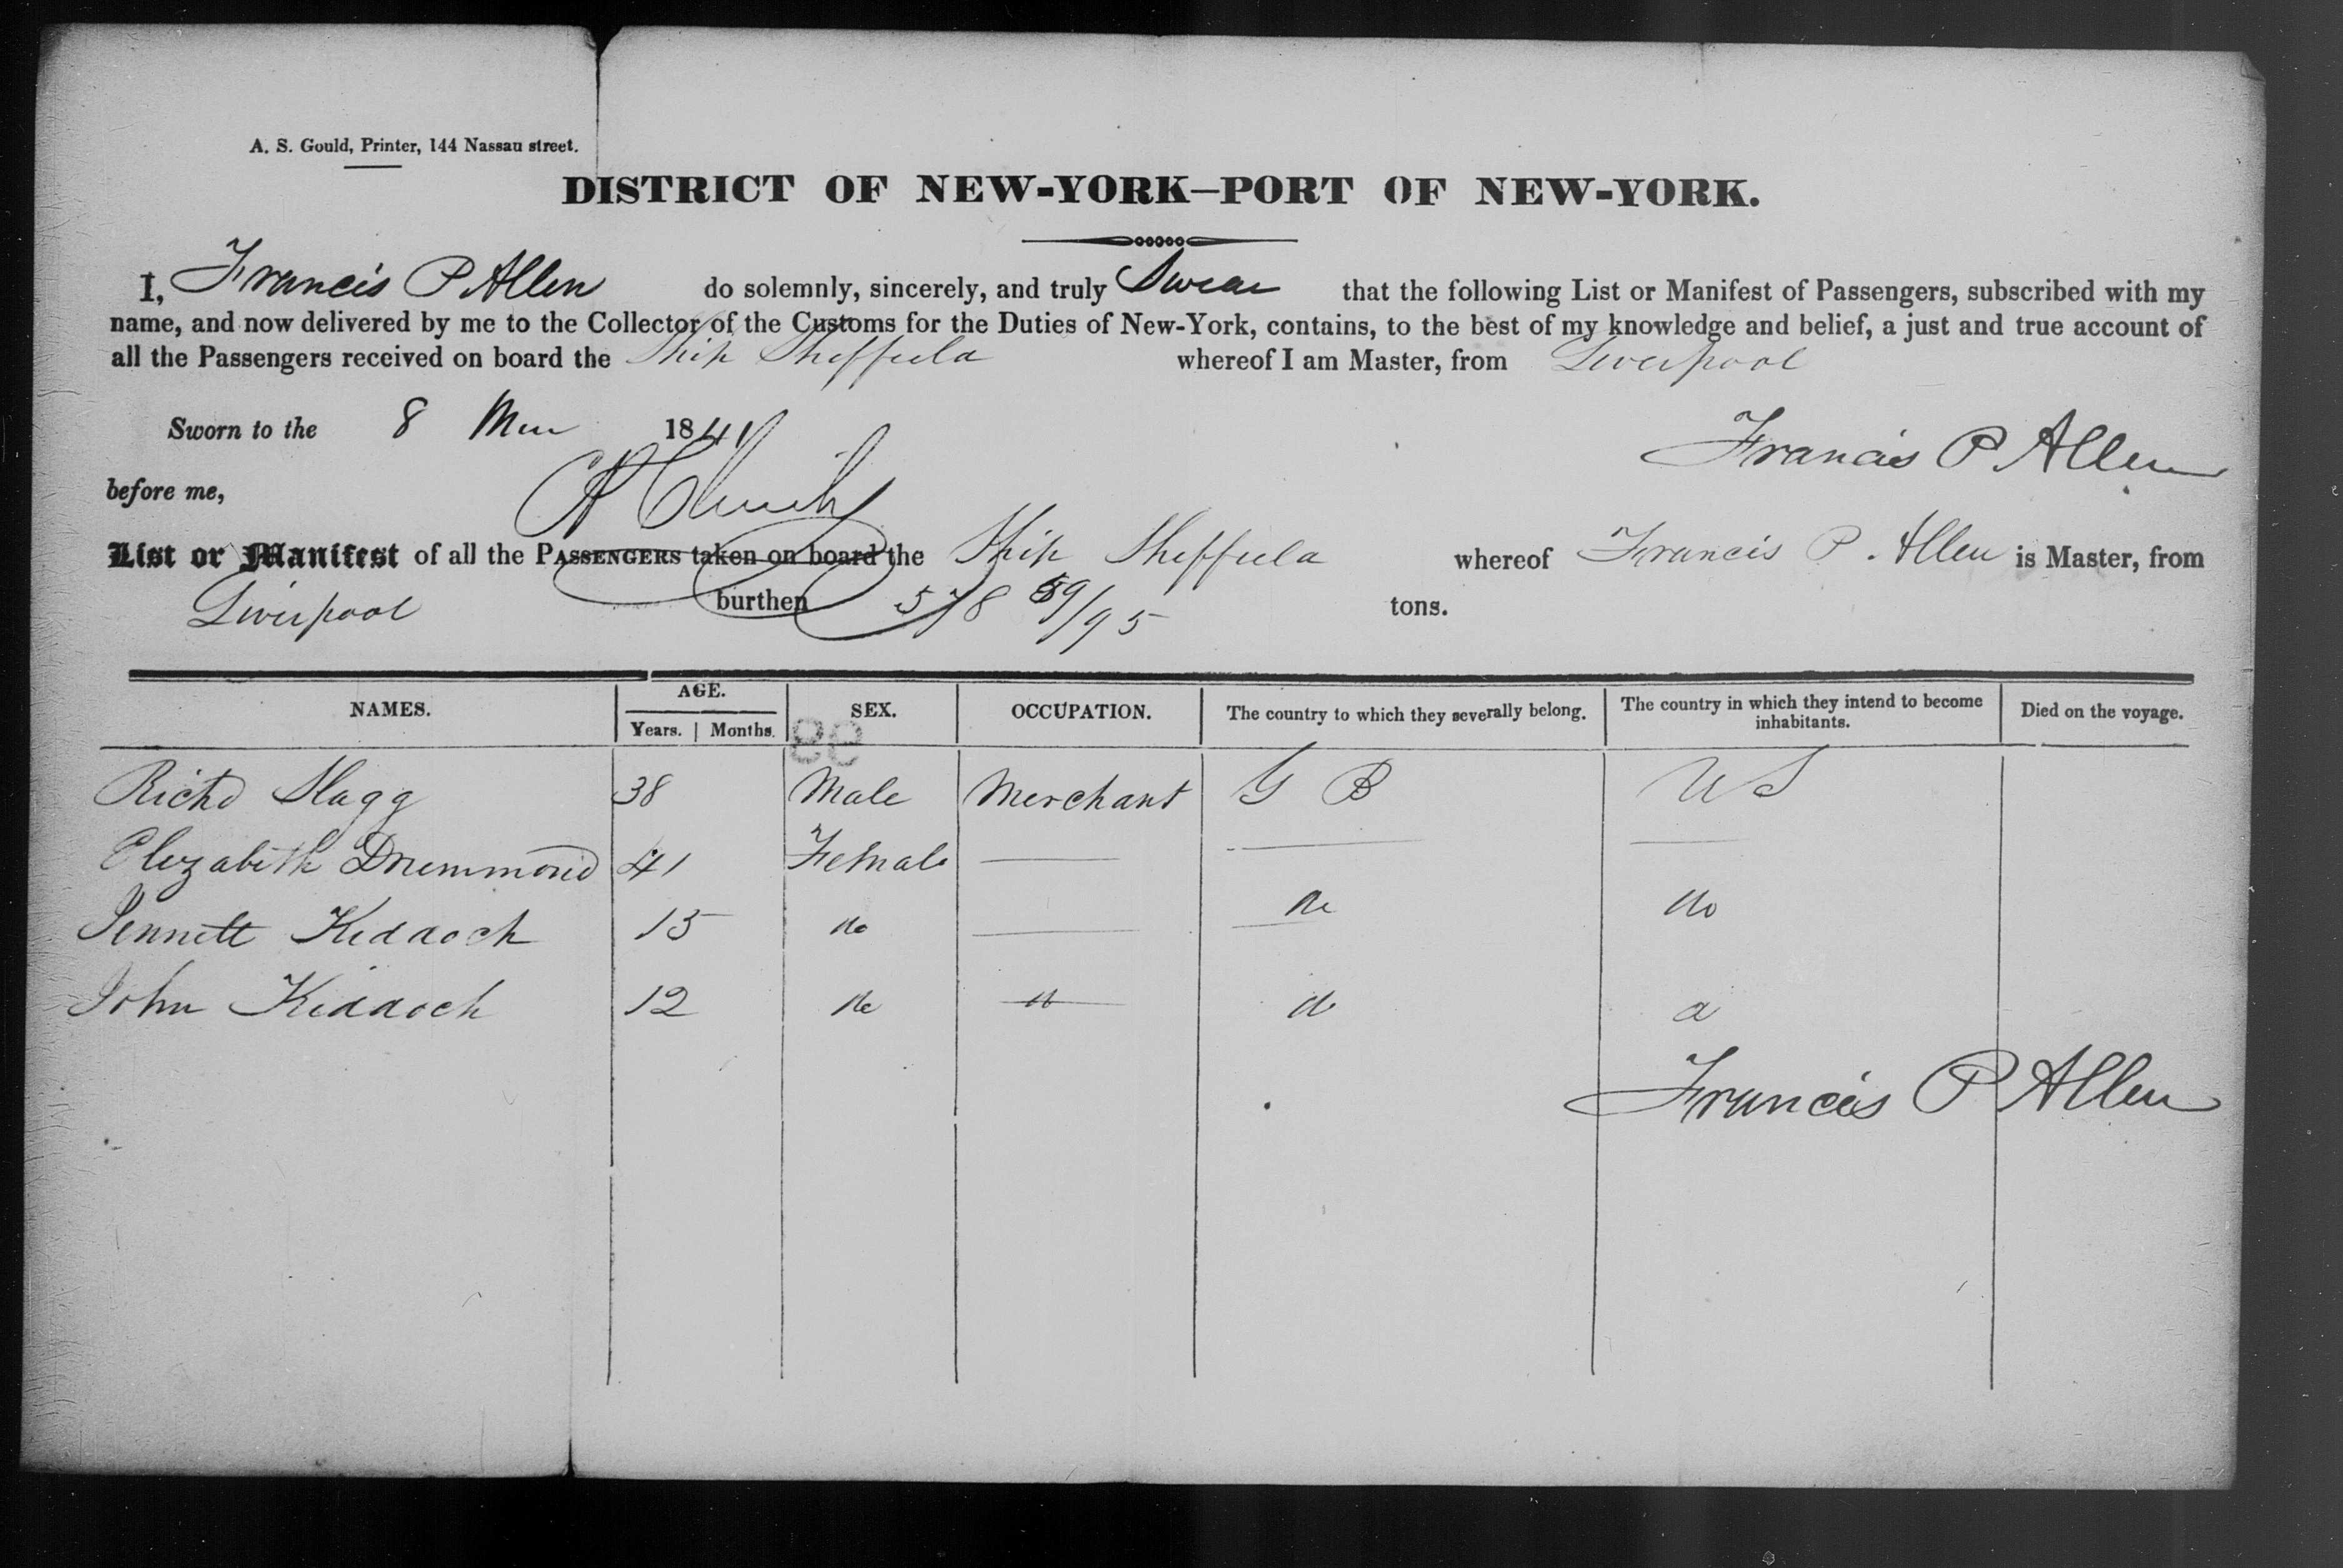 A. S. Gould, Printer, 144 Nassau street.
DISTRICT OF NEW-YORK—PORT OF NEW-YORK.
I, Francis P Allen do solemnly, sincerely, and truly Swear that the following List or Manifest of Passengers, subscribed with my
name, and now delivered by me to the Collector of the Customs for the Duties of New-York, contains, to the best of my knowledge and belief, a just and true account of
all the Passengers received on board the Ship Sheffield whereof I am Master, from Liverpool
Sworn to the 8 1841
Francis P Allen
before me,
List or Manifest of all the PASSENGERS taken on board the Ship Sheffield whereof Francis P. Allen is Master, from
Liverpool burthen 578 59/95 tons.
NAMES. AGE. SEX. OCCUPATION. The country to which they severally belong. The country in which they intend to become inhabitants. Died on the voyage.
Years. Months.
Richd Slagg 38 Male Merchant G B U S
Elizabeth Drummond 41 Female
Jennett Kiddoch 15 do do do
John Kiddoch 12 do do do
Francis P Allen